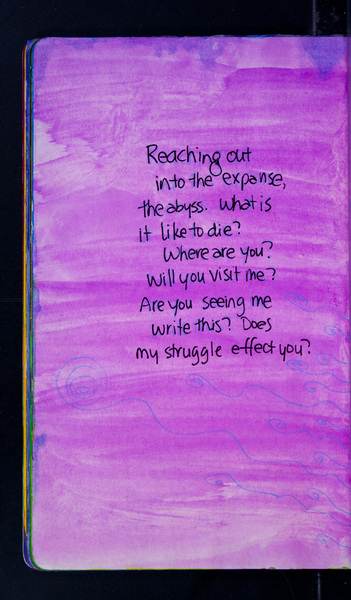 Reaching out
into the expanse,
the abyss. What is
it like to die?
Where are you?
Will you visit me?
Are you seeing me
write this? Does
my struggle effect you?